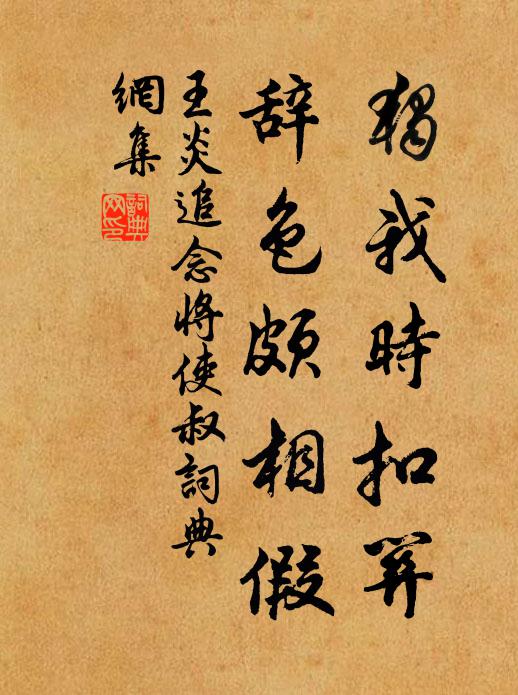 獨我時扣關
辞色頗相假
王炎追念将使叔詞典
網集
詞典
网印